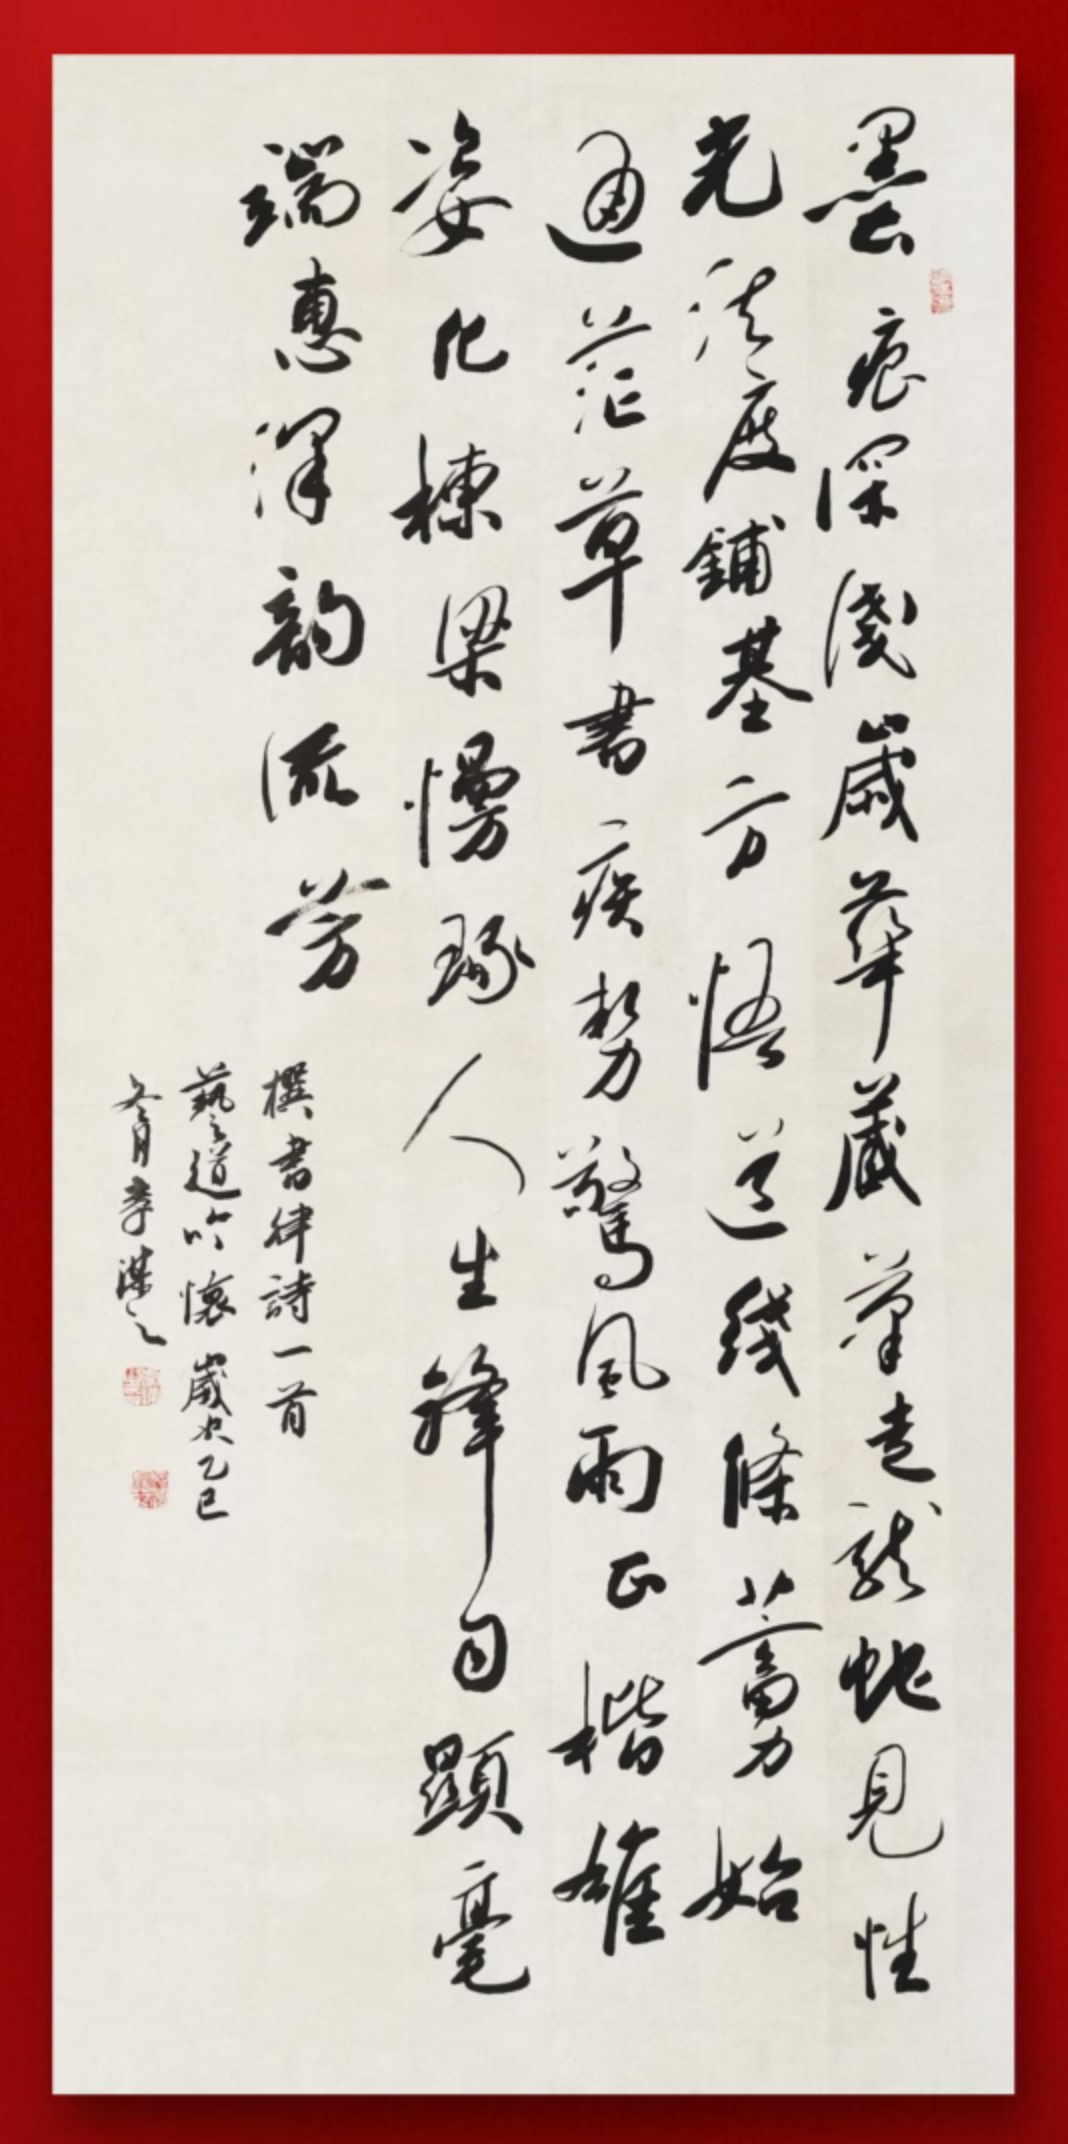 墨痕深淺歲華藏筆走龍蛇見性
光法度鋪基方悟道线條蓄力始
通茫草書疾势驚風雨正楷雄
姿化棟梁慢琢人生鋒自顯毫
端惠澤韵流芳
撰書律詩一首
藝道吟懷歲次乙巳
冬月李謀之